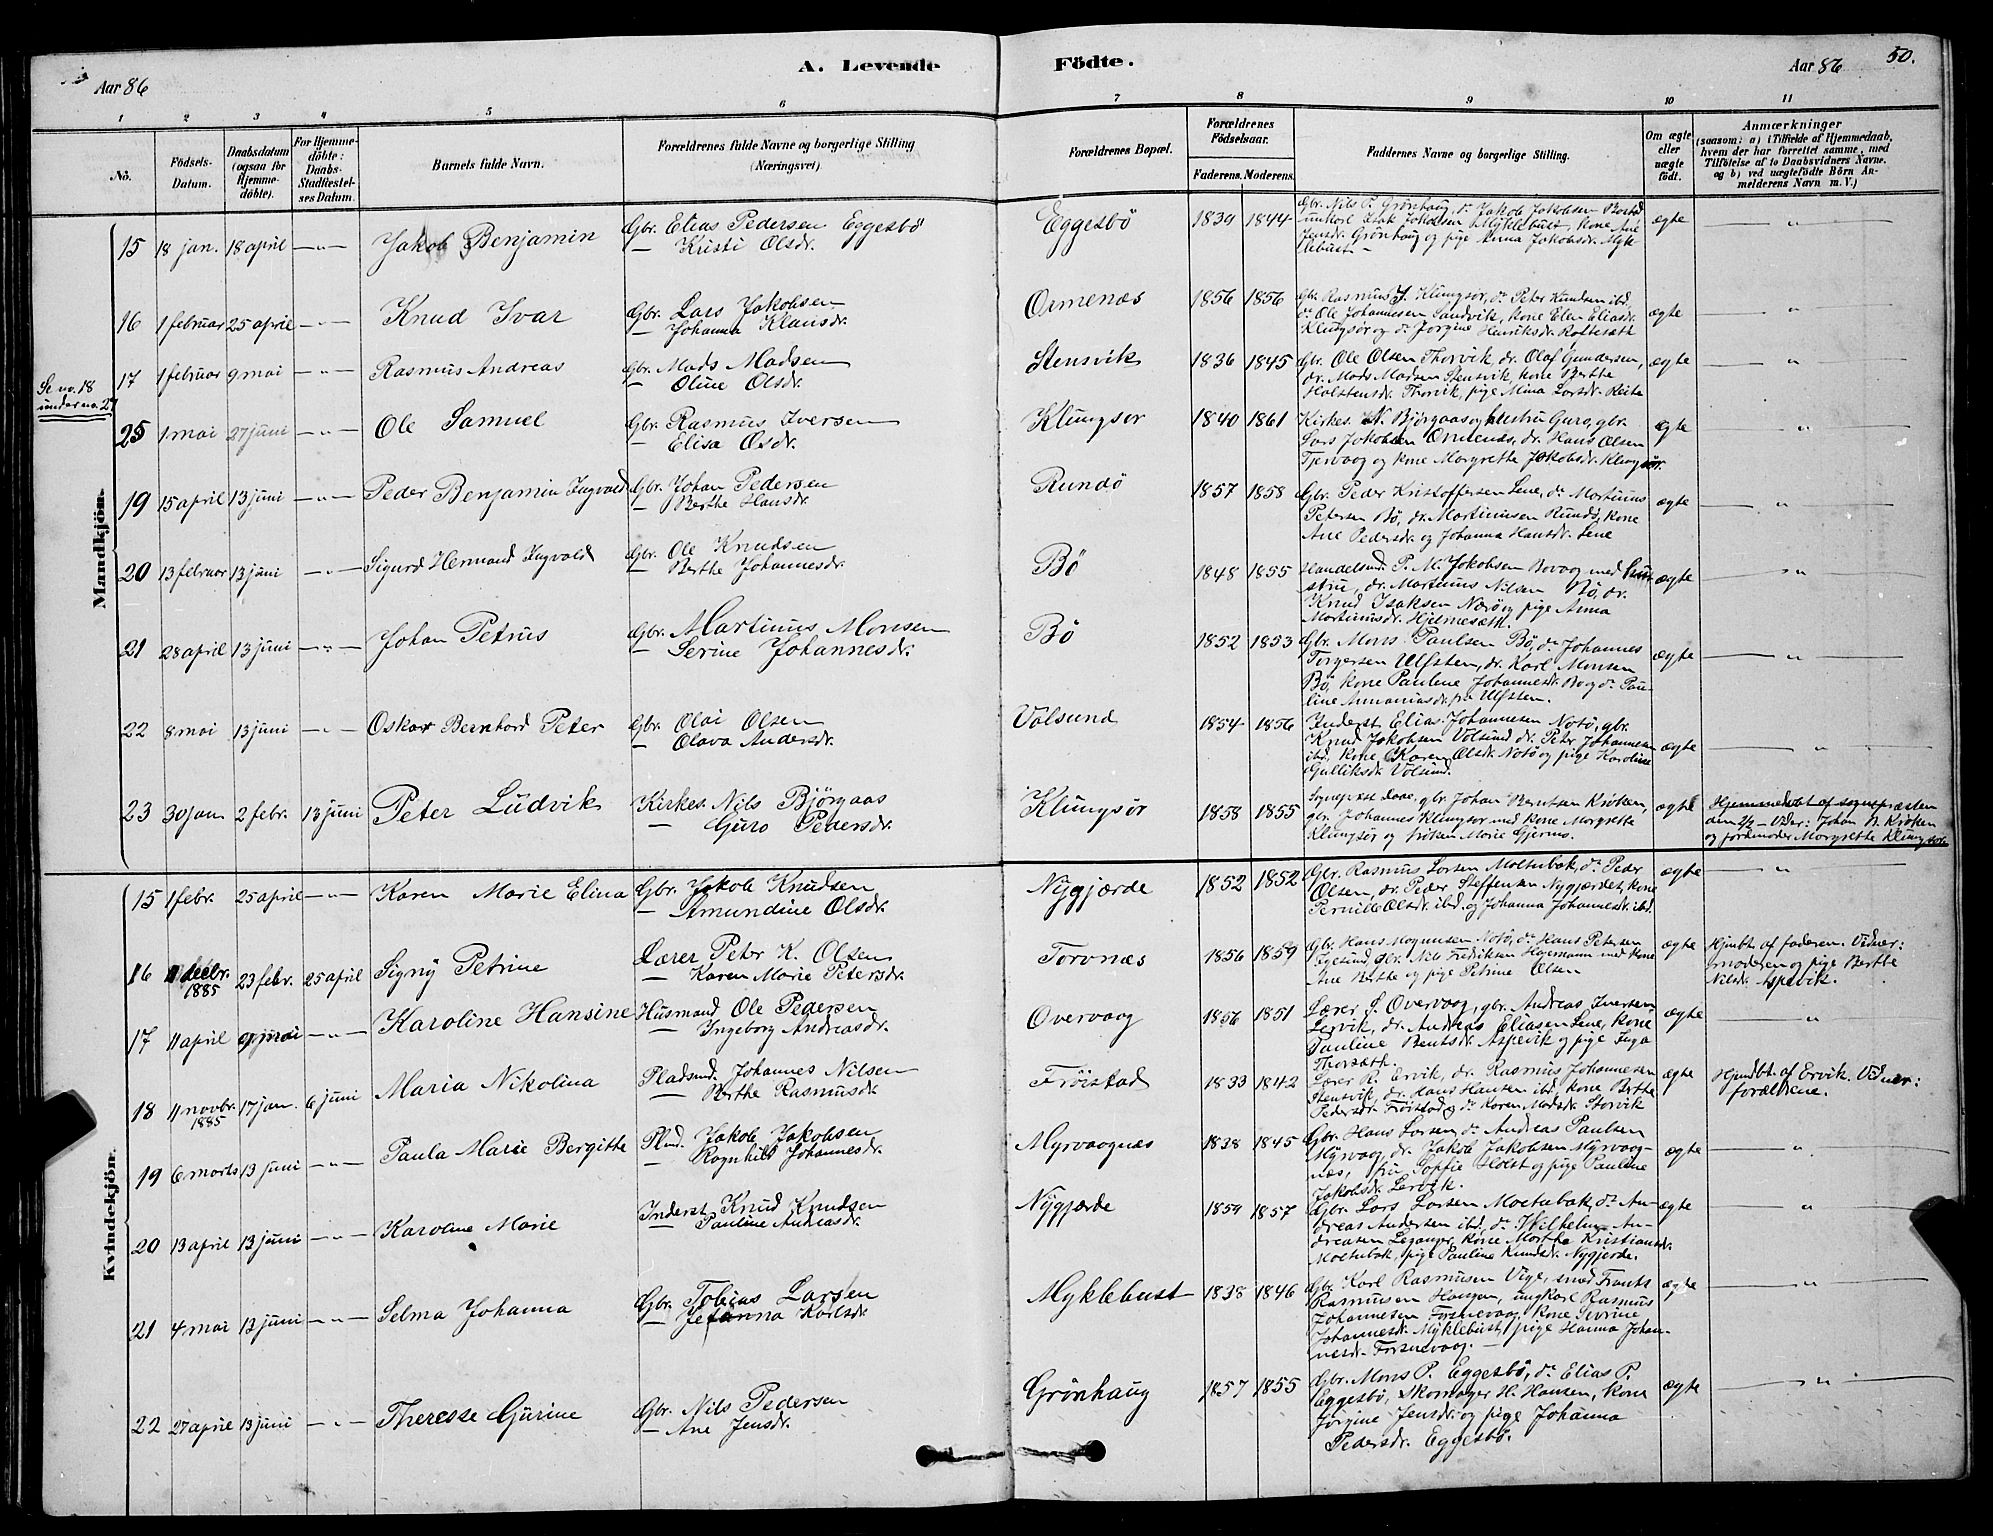 A. Levende
Födte.
Aar 86
Aar 86
50.
1 2 3 4 5 6 7 8 9 10 11
No.
Födsels-
Datum.
Daabsdatum
(ogsaa for
Hjemme-
döbte).
For Hjemme-
döbte:
Daabs-
Stadfæstel-
ses Datum.
Barnets fulde Navn.
Forældrenes fulde Navne og borgerlige Stilling
(Næringsvei)
Forældrenes Bopæl.
Forældrenes
Födselsaar.
Faderens. Moderens.
Faddernes Navne og borgerlige Stilling.
Om ægte
eller
uægte
födt.
Anmærkninger
(saasom: a) i Tilfælde af Hjemmedaab,
hvem der har forrettet samme, med
Tilföielse af to Daabsvidners Navne.
og b) ved uægtefödte Börn An-
melderens Navn m. V.)
Mandkjön.
15 18 jan. 18 april —„— Jakob Benjamin
Gbr. Elias Pedersen Eggesbö
— Kristi Olsdr.
Eggesbö 1839 1844
Gbr. Nils P. Grönhaug, do Jakob Jakobsen
ungkarl Isak Jakobsen Myklebust, kone Ane
Jensdr. Grönhaug og pige Anna Jakobsdr. Myk-
lebust —
ægte —„—
16 1 februar 25 april —„— Knud Ivar
Gbr. Lars Jakobsen
— Johanna Klausdr.
Ormenæs 1856 1856
Gbr. Rasmus J. Klungsör, do Peter Knudsen ibd.
do Ole Johannesen Sandvik, kone Elen Eliasdr.
Klungsör og do Jorgine Henriksdr. Rottesæth
ægte —„—
17 1 februar 9 mai —„— Rasmus Andreas
Gbr. Mads Madsen
— Oline Olsdr.
Stensvik 1836 1845
Gbr. Ole Olsen Thorvik, dr. Olaf Gundersen,
dr. Mads Madsen Stensvik, kone Berthe
Holstensdr. Thorvik, pige Mina Larsdr.
ægte —„—
Se no. 18
under no. 27
25 1 mai 27 juni —„— Ole Samuel
Gbr. Rasmus Iversen
— Elisa Osdr.
Klungsör 1840 1861
Kirkes. N. Björgaas og hustru Guro, gbr.
Lars Jakobsen Ormenæs, dr. Hans Olsen
Tjervaag og kone Margrethe Jakobsdr. Klungsör.
ægte —„—
19 15 april 13 juni —„— Peder Benjamin Ingvald
Gbr. Johan Pedersen
— Berthe Hansdr.
Rundö 1857 1858
Gbr. Peder Kristoffersen Lene, do Martinus
Petersen Bö, dr. Martinusen Rundö, kone
Ane Pedersdr. og Johanna Hansdr. Lene
ægte —„—
20 13 februar 13 juni —„— Sigurd Hermand Ingvald
Gbr. Ole Knudsen
— Berthe Johannesdr.
Bö 1848 1855
Handelsmd. P. M. Jakobsen Bovaag med hus-
stru, dr. Martinus Nilsen Bö, dr.
Knud Isaksen Nærö og pige Anna
Martinusdr. Hjelmesæth.
ægte —„—
21 28 april 13 juni —„— Johan Petrus
Gbr. Martinus Monsen
— Serine Johannesdr.
Bö 1852 1853
Gbr. Mons Paulsen Bö, do Johannes
Torgersen Ulfsten, dr. Karl Monsen
Bö, kone Pauline Johannesdr. Bö og do Pau-
line Ananiasdr. fra Ulfsten.
ægte —„—
22 8 mai 13 juni —„— Oskar Bernhard Peter
Gbr. Olai Olsen
— Olava Andersdr.
Volsund 1854 1856
Inderst Elias Johannesen Notö, gbr.
Knud Jakobsen Volsund dr. Peter Johannesen
ibd, kone Karen Olsdr. Notö og pige Karoline
Gulliksdr. Volsund.
ægte —„—
23 30 jan 2 febr. 13 juni Peter Ludvik
Kirkes. Nils Björgaas
— Guro Pedersdr.
Klungsör 1858 1855
Sogneprest Daae, gbr. Johan Berntsen Kröken,
gbr. Johannes Klungsör med kone Margrethe
Klungsör og fröken Marie Gjerms.
ægte
Hjemmedöbt af sognepræsten
den 2/2 – Vidner: Johan B. Kröken
og jordmoder Margrethe Klungsör.
Kvindekjön.
15 1 febr. 25 april —„— Karen Marie Elina
Gbr. Jakob Knudsen
— Amundine Olsdr.
Nygjærde 1852 1852
Gbr. Rasmus Larsen Moltubak, do Peder
Olsen, dr. Peder Steffensen Nygjærdet, kone
Pernille Olsdr. ibd. og Johanna Johannesdr. ibd.
ægte —„—
16 11 decbr. 1885 23 febr. 25 april Signy Petrine
Lærer Peter K. Olsen
— Karen Marie Petersdr.
Torvnæs 1856 1859
Gbr. Hans Mogunsen Notö, do Hans Petersen
Egelund gbr. Nils Fredriksen Hagemann med kone
Ane Berthe og pige Petrine Olsen
ægte
Hjmbt. af faderen. Vidner:
moderen og pige Berthe
Nilsdr. Aspevik.
17 11 april 9 mai —„— Karoline Hansine
Husmand Ole Pedersen
— Ingeborg Andreasdr.
Overvaag 1856 1851
Lærer S. Overvaag, gbr. Andreas Iversen
Lervik, dr. Andreas Eliasen Lene, kone
Pauline Bentsdr. Aspevik og pige Inga
Thorsæth.
ægte —„—
18 11 novbr. 1885 17 jan. 6 juni Maria Nikolina
Pladsmd. Johannes Nilsen
— Berthe Rasmusdr.
Fröistad 1833 1842
Lærer R. Ervik, dr. Rasmus Johannesen
Stensvik, dr. Hans Hansen ibd, kone Berthe
Pedersdr. Fröistad og do Karen Madsdr. Storvik
ægte
Hjmdbt. af Ervik. Vidner:
forældrene.
19 6 marts 13 juni —„— Paula Marie Bergitte
Plmd. Jakob Jakobsen
— Ragnhild Johannesdr.
Myrvaagnæs 1838 1845
Gbr. Hans Larsen do Andreas Paulsen
Myrvaag, dr. Jakob Jakobsen Myrvaag-
næs, fru Sopfie Holst og pige Pauline
Jakobsdr. Lervik.
ægte —„—
20 13 april 13 juni —„— Karoline Marie
Inderst Knud Knudsen
— Pauline Andreasdr.
Nygjærde 1859 1857
Gbr. Lars Larsen Moltubak, do An-
dreas Andersen ibd, do Wilhelm An-
dreasen Leganger, kone Marthe Kristiansdr.
Moltubak, pige Pauline Knudsdr. Nygjerde.
ægte —„—
21 4 mai 13 juni —„— Selma Johanna
Gbr. Tobias Larsen
— Johanna Karlsdr.
Myklebust 1838 1846
Gbr. Karl Rasmusen Vige, smed Frants
Rasmusen Haugen, ungkarl Rasmus
Johannesen Fosnevaag, kone Severine
Johannesdr. Myklebust, pige Hanna Johan-
nesdr. Fosnevaag. —
ægte —„—
22 27 april 13 juni —„— Theresse Gurine
Gbr. Nils Pedersen
— Ane Jensdr.
Grönhaug 1857 1855
Gbr. Mons P. Eggesbö, do Elias P.
Eggesbö, Skomager H. Hansen, kone
Jörgine Jensdr. og pige Johanna
Pedersdr. Eggesbö.
ægte —„—